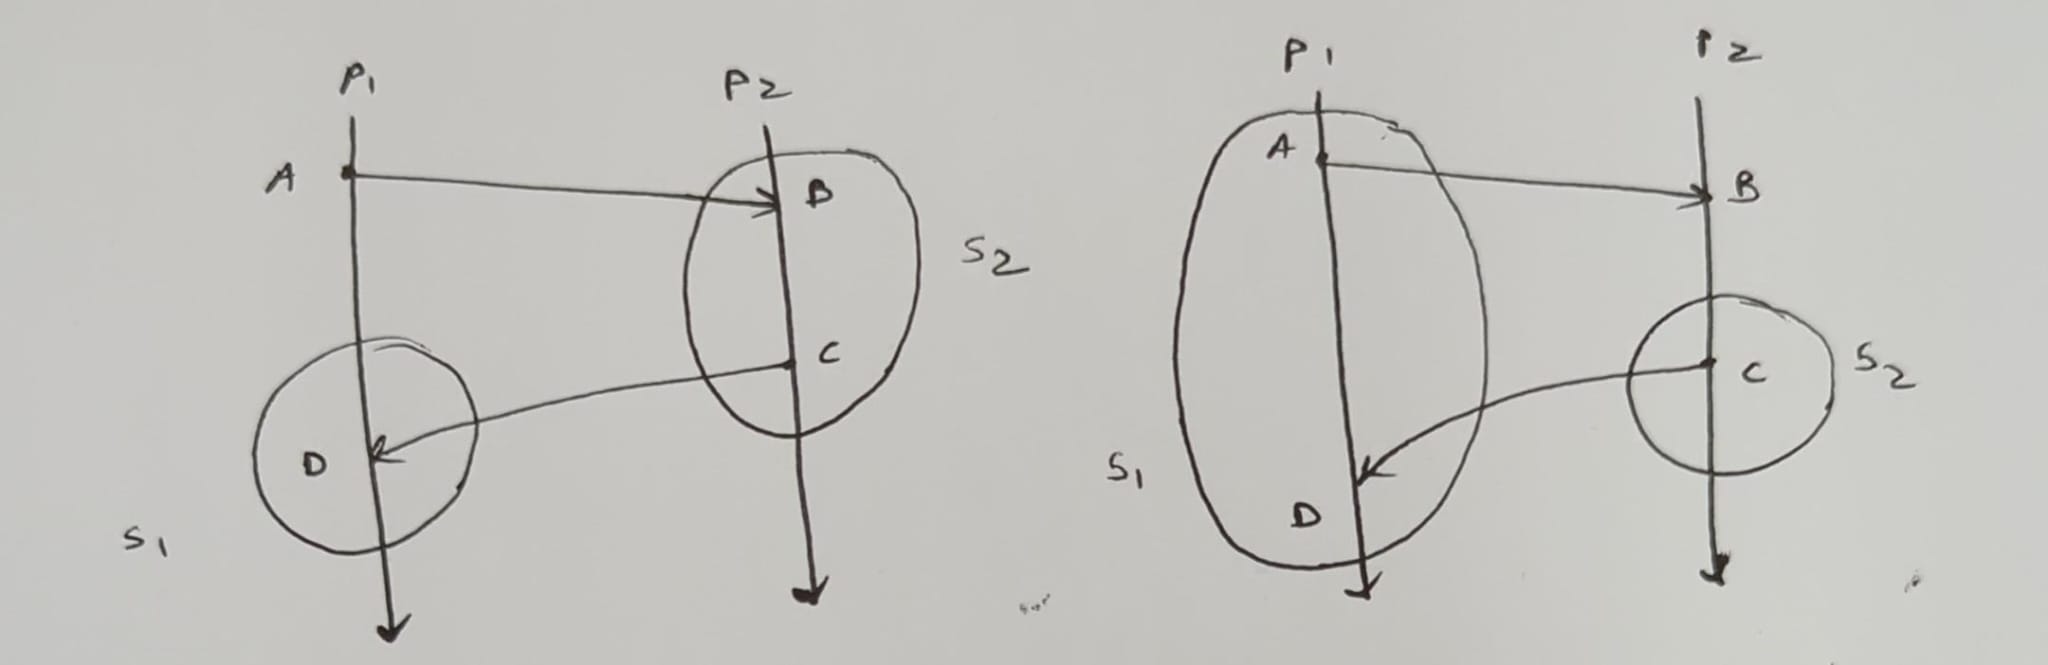 P1
P2
A
B
S2
C
D
S1
P1
P2
A
B
C
S2
S1
D